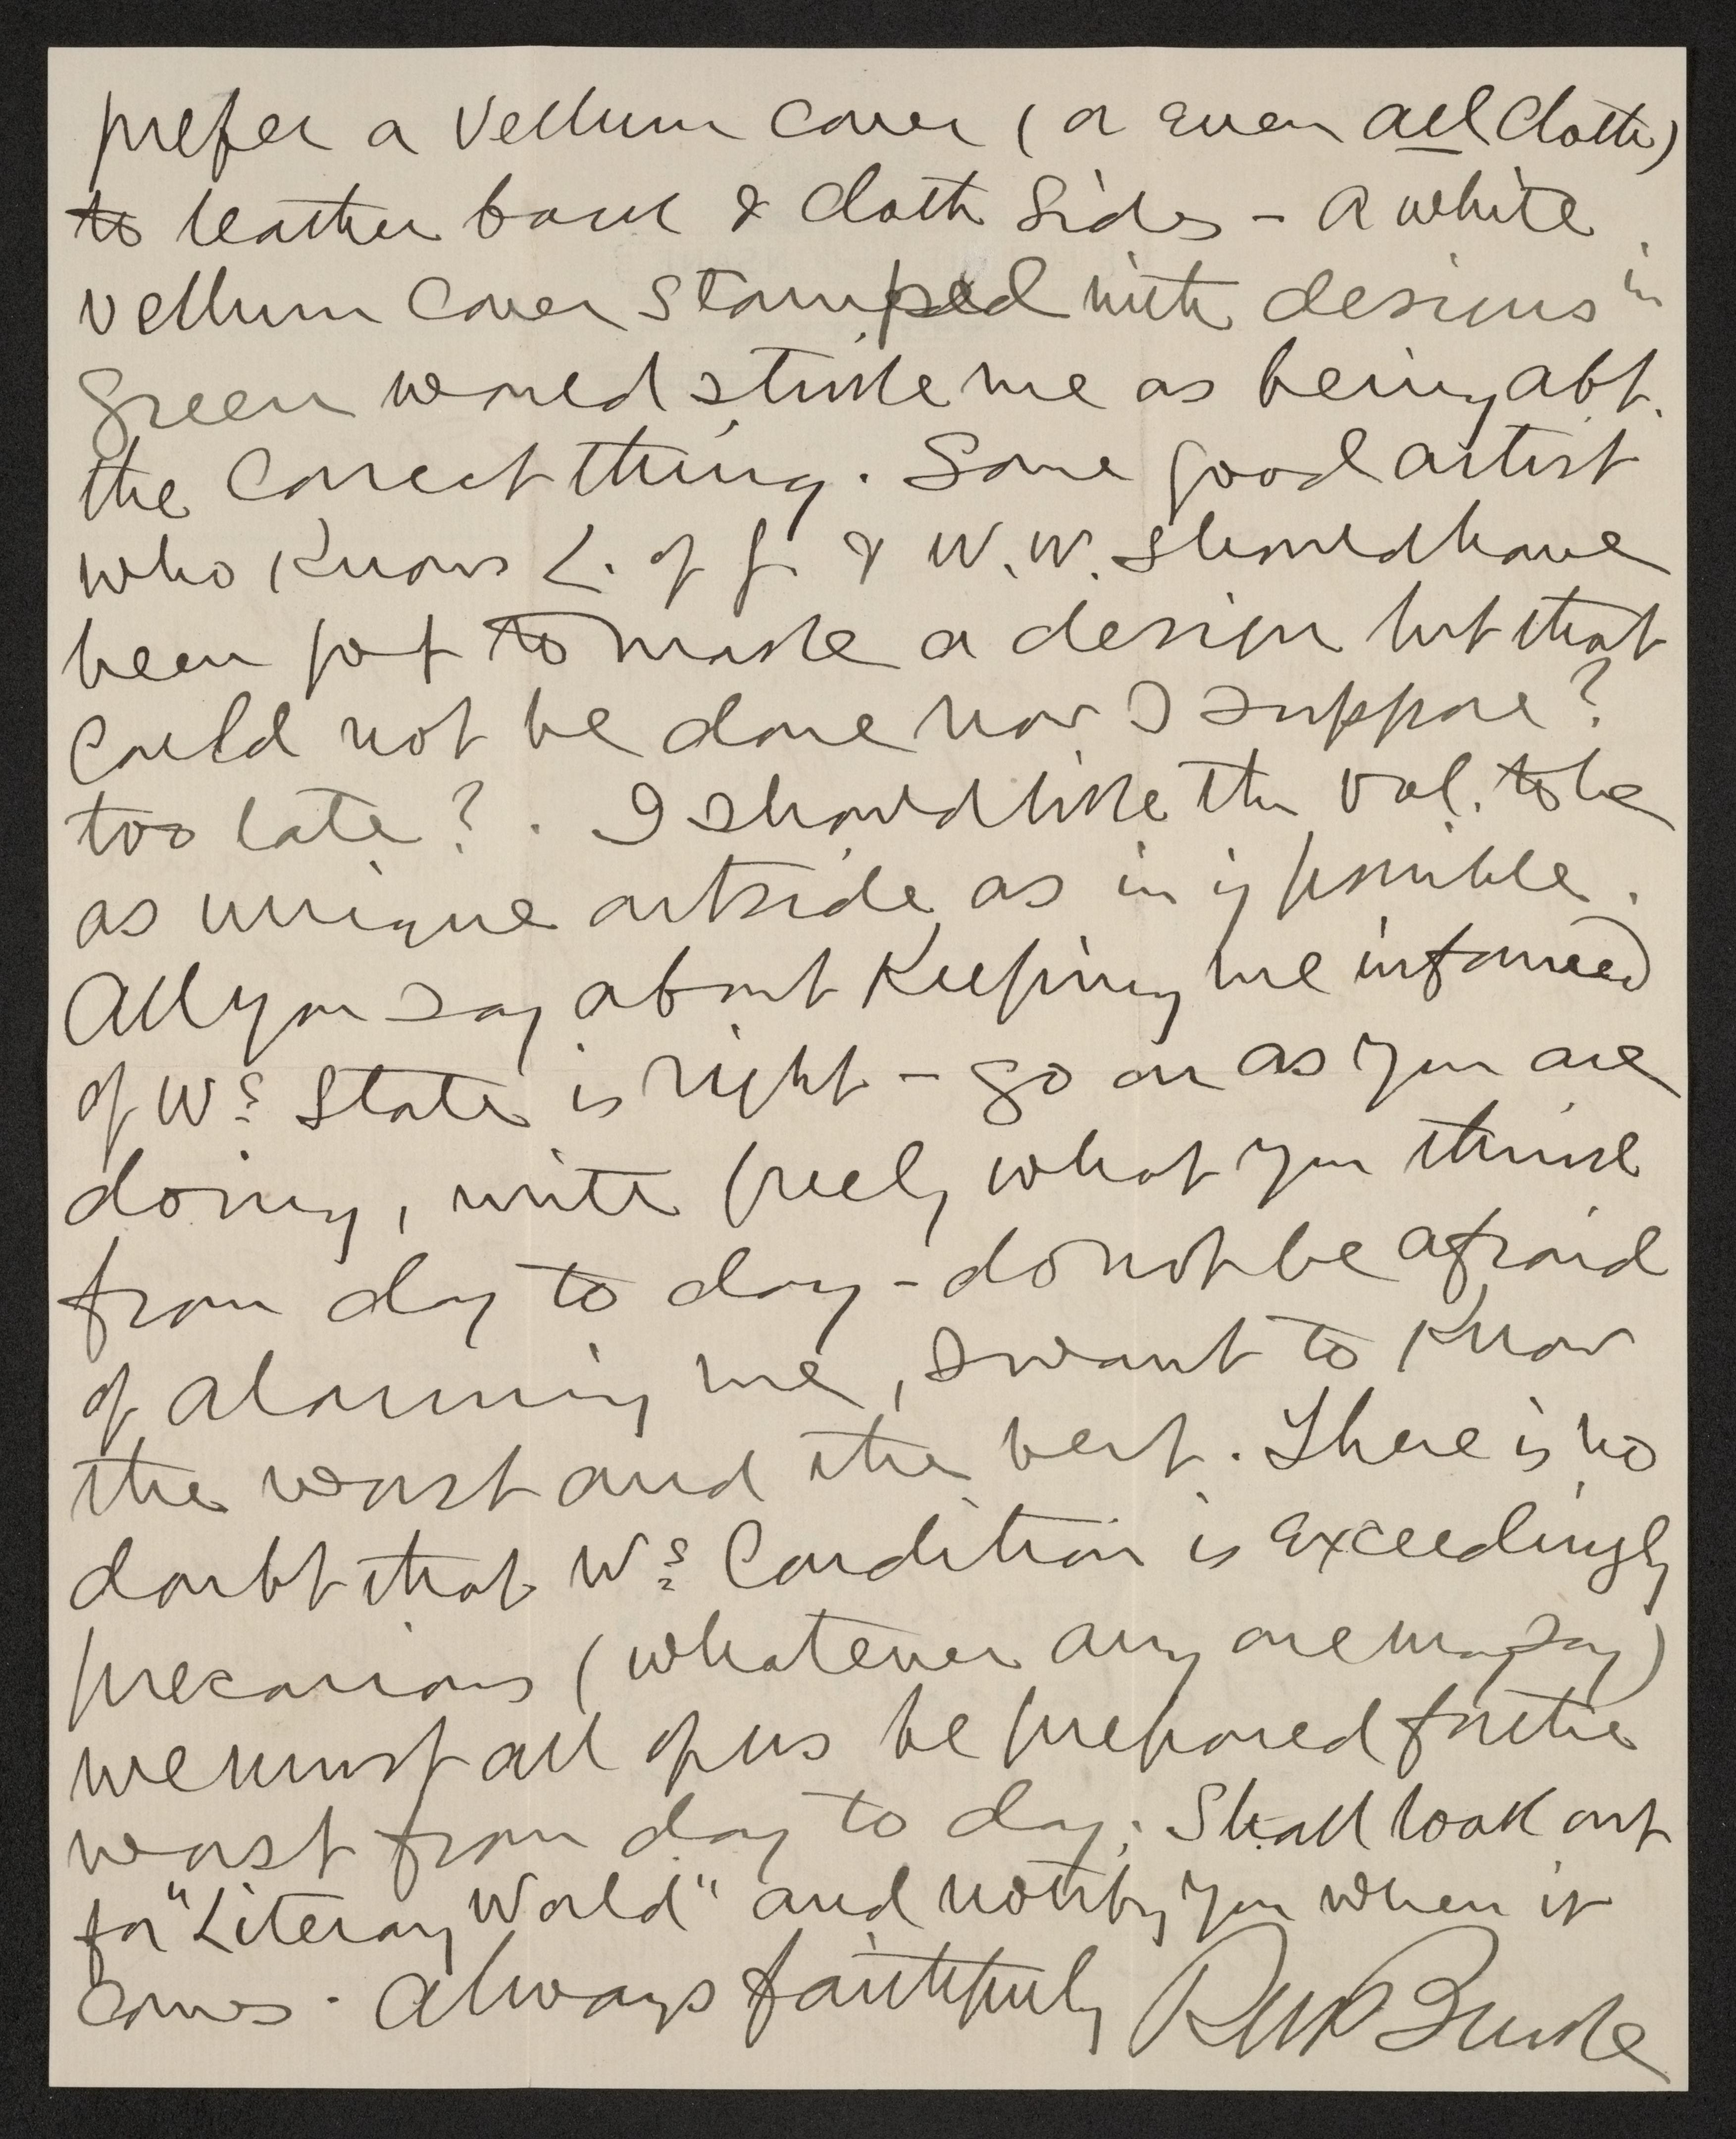 prefer a vellum cover (or even all cloth)
to leather back & cloth sides – a white
vellum cover stamped with designs in
green would strike me as being abt.
the correct thing. Some good artist
who knows L. of G. & W. W. should have
been got to make a design but that
could not be done now I suppose?
too late? . I should like the vol. to be
as unique outside as in if possible.
All you say about keeping me informed
of W's state is right – go on as you are
doing, write freely what you think
from day to day – do not be afraid
of alarming me, I want to know
the worst and the best. There is no
doubt that W's condition is exceedingly
precarious (whatever any one may say)
we must all of us be prepared for the
worst from day to day. Shall look out
for "Literary World" and notify you when it
comes. Always faithfully RM Bucke